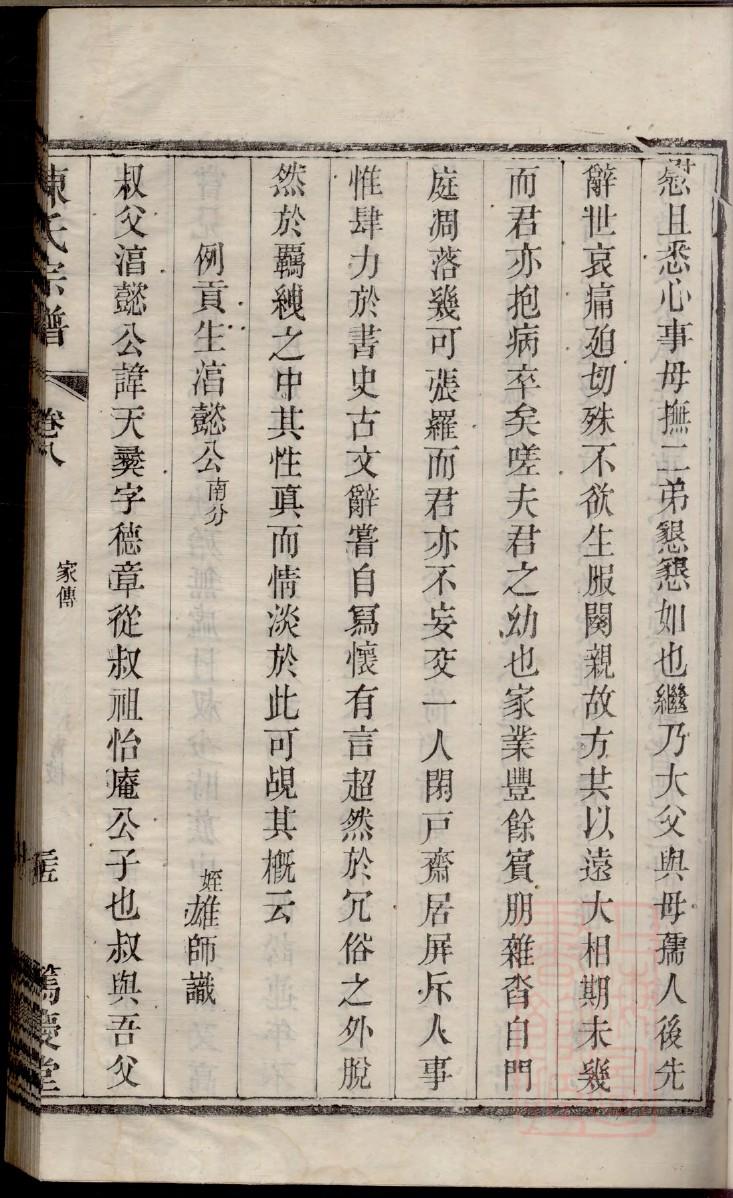 慰且悉心事母撫二弟懇懇如也繼乃大父與母孺人後先
辭世哀痛廹切殊不欲生服闋親故方共以遠大相期未幾
而君亦抱病卒矣嗟夫君之幼也家業豐餘賓朋雜沓自門
庭凋落幾可張羅而君亦不妄交一人閉戸齋居屏斥人事
惟肆力於書史古文辭嘗自寫懷有言超然於冗俗之外脫
然於羈絏之中其性真而情淡於此可覘其槪云
姪雄師識
例貢生㵙懿公南分
叔父㵙懿公諱天彝字德章從叔祖怡庵公子也叔與吾父
陳氏宗譜
卷八
家傳
篤慶堂